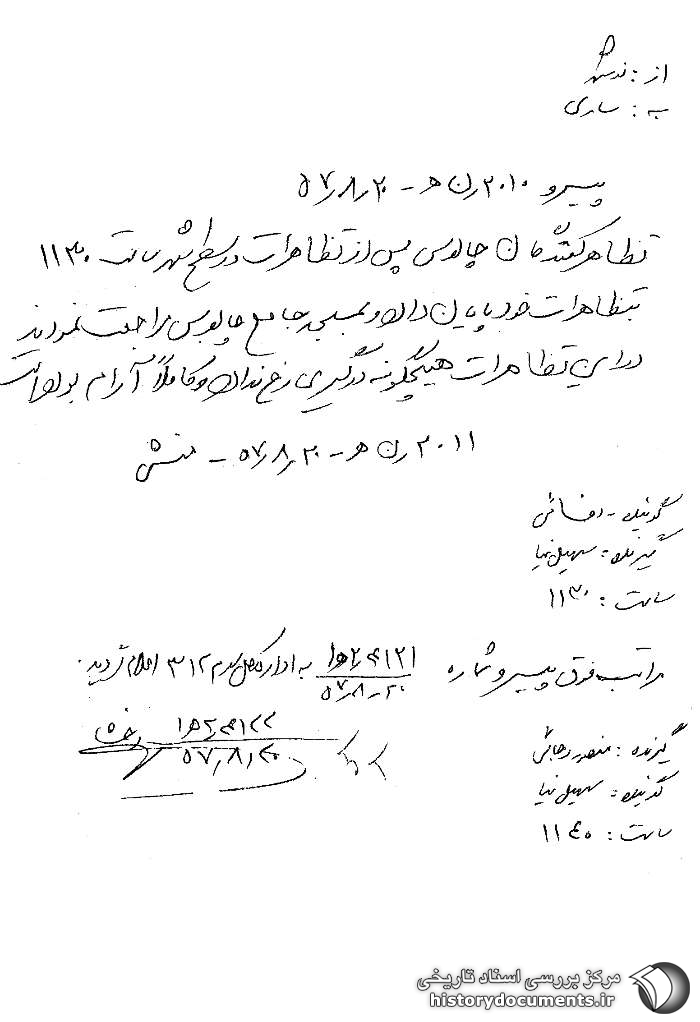 از : نوشهر
به : ساری
پیرو ۲۰۱۰/ن ه‍ - ۵۷/۸/۲۰
تظاهرکنندگان چالوس پس از تظاهرات در سطح شهر ساعت ۱۱۳۰
بتظاهرات خود پایان داده و بمسجد جامع چالوس مراجعت نمودند
در این تظاهرات هیچگونه درگیری رخ نداده و کاملاً آرام بوده است
۲۰۱۱/ن ه‍ - ۵۷/۸/۲۰ - منشی
گوینده - رضائی
گیرنده : سهیل نیا
ساعت : ۱۱۳۰
مراتب فوق پیرو شماره
به اداره کل سوم ۳۱۲ اعلام گردید.
۵۷/۸/۲۰
۵۷/۸/۲۰
گیرنده : منصور رجائی
گوینده : سهیل نیا
ساعت : ۱۱۴۰
مرکز بررسی اسناد تاریخی
historydocuments.ir